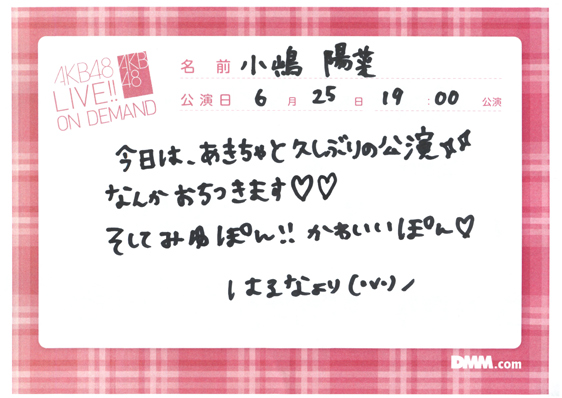 AKB48
LIVE!!
ON DEMAND
AKB
48
名 前 小嶋 陽菜
公演日 6 月 25 日 19 : 00 公演
今日は、あきちゃと久しぶりの公演☆☆
なんかおちつきます♡♡
そしてみゆぽん!! かわいいぽん♡
はるなより (・v・)ノ
DMM.com